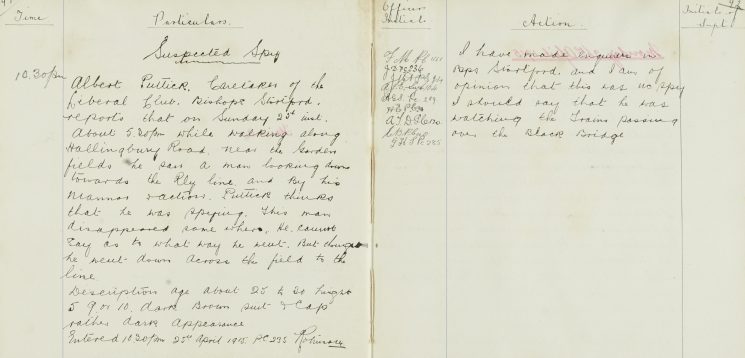 Time
Particulars.
Officers
Initials
Action.
Initials of
Supt
Suspected Spy
10.30pm
Albert Puttick. Caretaker of the
Liberal Club. Bishops Stortford.
reports that on Sunday 25th inst.
About 5.20pm while walking along
Hallingbury Road, near the Garden
fields he saw a man looking down
towards the Rly line, and by his
manner & actions. Puttick thinks
that he was spying. This man
disappeared some where. He cannot
say as to what way he went. But thought
he went down across the field to the
line
Description age about 25 to 30 height
5 9 or 10. dark Brown suit & Cap
rather dark appearance
Entered 10.30pm 25th April 1915. PC 295 Robinson
I have made enquiries in
Bps Stortford. and I am of
opinion that this was no spy
I should say that he was
watching the Trains passing
over the Black Bridge